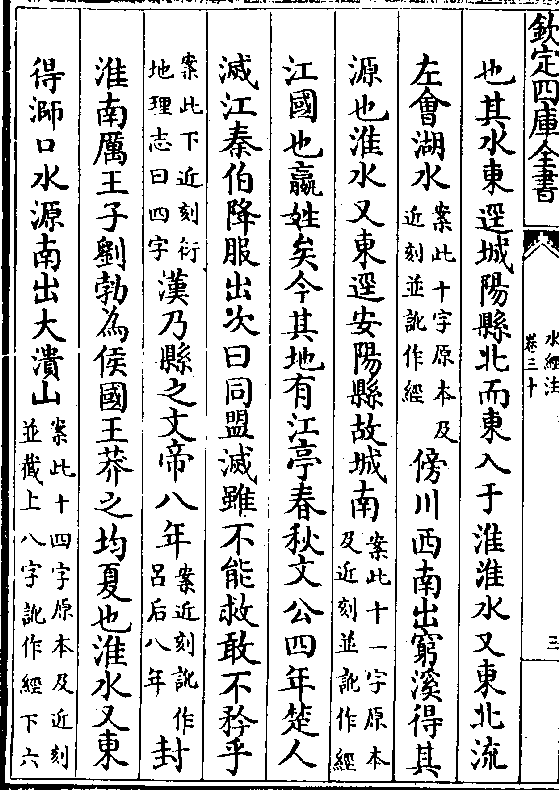 欽定四庫全書
水經注
卷三十
三
也其水東逕城陽縣北而東入于淮淮水又東北流
左會湖水案此十字原本及近刻並訛作經傍川西南出窮溪得其
源也淮水又東逕安陽縣故城南案此十一字原本及近刻並訛作經
江國也嬴姓矣今其地有江亭春秋文公四年楚人
滅江秦伯降服出次曰同盟滅雖不能救敢不矜乎
案此下近刻衍地理志曰四字漢乃縣之文帝八年案近刻訛作呂后八年封
淮南厲王子劉勃為侯國王莽之均夏也淮水又東
得溮口水源南出大潰山案此十四字原本及近刻並截上八字訛作經下六